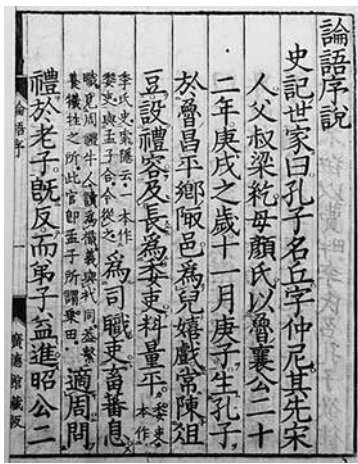 論語序說
史記世家曰孔子名丘字仲尼其先宋
人父叔梁紇母顏氏以魯襄公二十
二年庚戌之歲十一月庚子生孔子
於魯昌平鄉陬邑為兒嬉戲常陳俎
豆設禮容及長為委吏料量平委吏本作
季氏史索隱云一本作委吏與孟子合今從之為司職吏畜蕃息
職見周禮牛人讀為樴義與杙同蓋繫養犧牲之所此官即孟子所謂乘田適周問
禮於老子既反而弟子益進昭公二
論語序 一 廣德館藏板